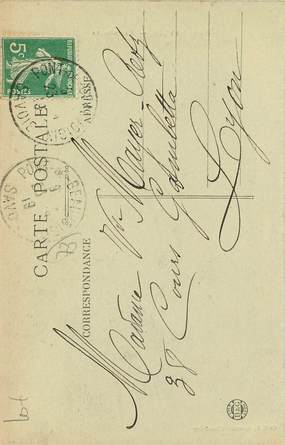 CARTE POSTALE
CORRESPONDANCE
ADRESSE
5c
Madame Vve Mayer
38 Cours Gambetta
Lyon
73
lot